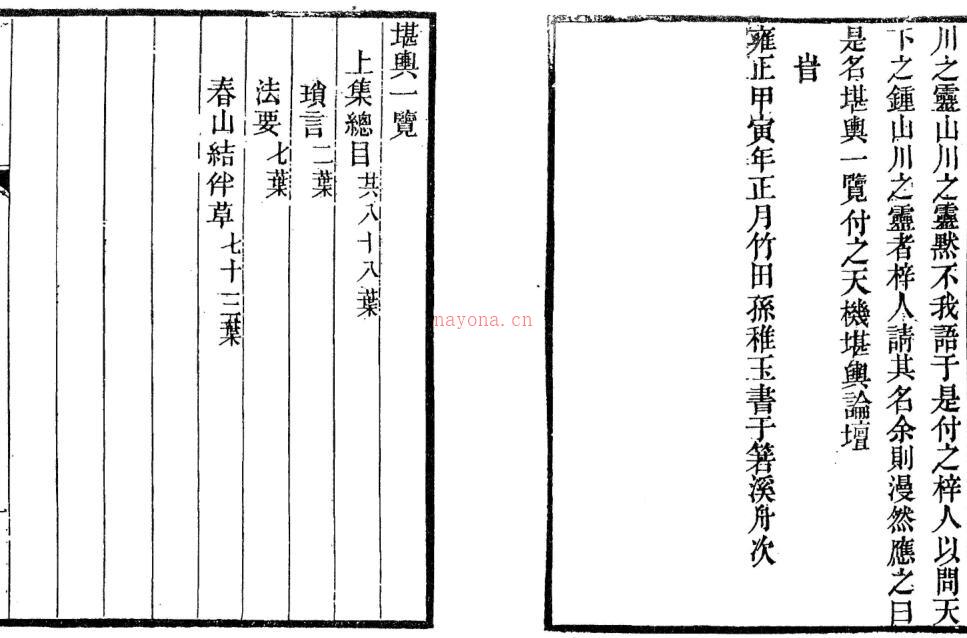 川之靈山川之靈黙不我語于是付之梓人以問天
下之鍾山川之靈者梓人請其名余則漫然應之曰
是名堪輿一覽付之天機堪輿論壇
旹
雍正甲寅年正月竹田孫稚玉書于箬溪舟次
堪輿一覽
上集總目共八十八葉
瑣言二葉
法要七葉
春山結伴草七十三葉
nayona.cn